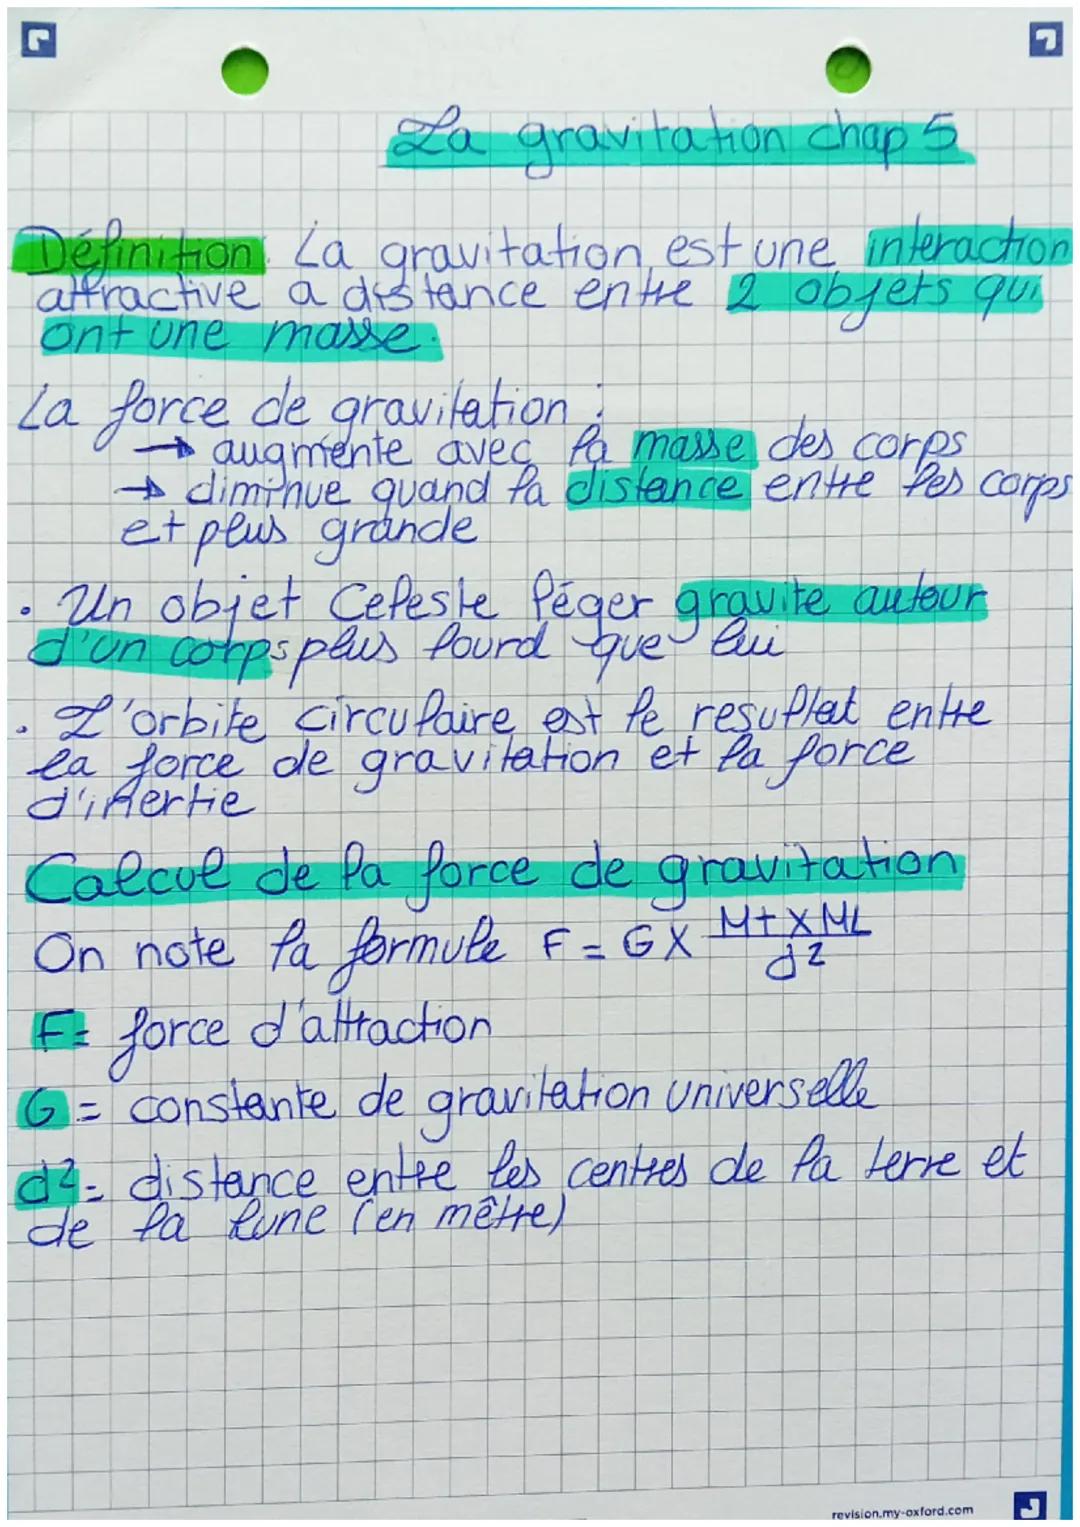 La gravitation chap 5
Définition: La gravitation est une interaction
attractive a distance entre 2 objets qui
ont une masse.
La force de gravitation :
→ augmente avec la masse des corps
→ diminue quand la distance entre les corps
et plus grande
. Un objet Celeste léger gravite autour
d'un corps plus lourd que lui
. L'orbite circulaire est le resultat entre
la force de gravitation et la force
d'inertie
Calcul de la force de gravitation
On note la formule F = G X Mt X ML / d²
F= force d'attraction
G = constante de gravitation universelle
d²= distance entre les centres de la terre et
de la lune (en mètre)
revision.my-oxford.com